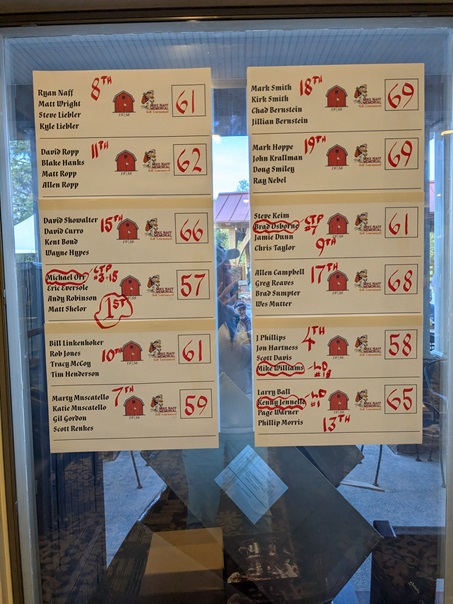 Ryan Naff
Matt Wright
Steve Liebler
Kyle Liebler
8TH
61
David Ropp
Blake Hanks
Matt Ropp
Allen Ropp
11TH
62
David Showalter
David Curro
Kent Bond
Wayne Hypes
15TH
66
Michael Orr
Eric Eversole
Andy Robinson
Matt Shelor
CTP
1ST
57
Bill Linkenhoker
Rob Jones
Tracy McCoy
Tim Henderson
10TH
61
Marty Muscatello
Katie Muscatello
Gil Gordon
Scott Renkes
7TH
59
Mark Smith
Kirk Smith
Chad Bernstein
Jillian Bernstein
18TH
69
Mark Hoppe
John Krallman
Doug Smiley
Ray Nebel
19TH
69
Steve Keim
Brad Osborne
Jamie Dunn
Chris Taylor
CTP
#7
9TH
61
Allen Campbell
Greg Reaves
Brad Sumpter
Wes Mutter
17TH
68
J Phillips
Jon Hartness
Scott Davis
Mike Williams
4TH
LD
#18
58
Larry Ball
Kenny Jennelle
Page Warner
Phillip Morris
LD
#1
13TH
65